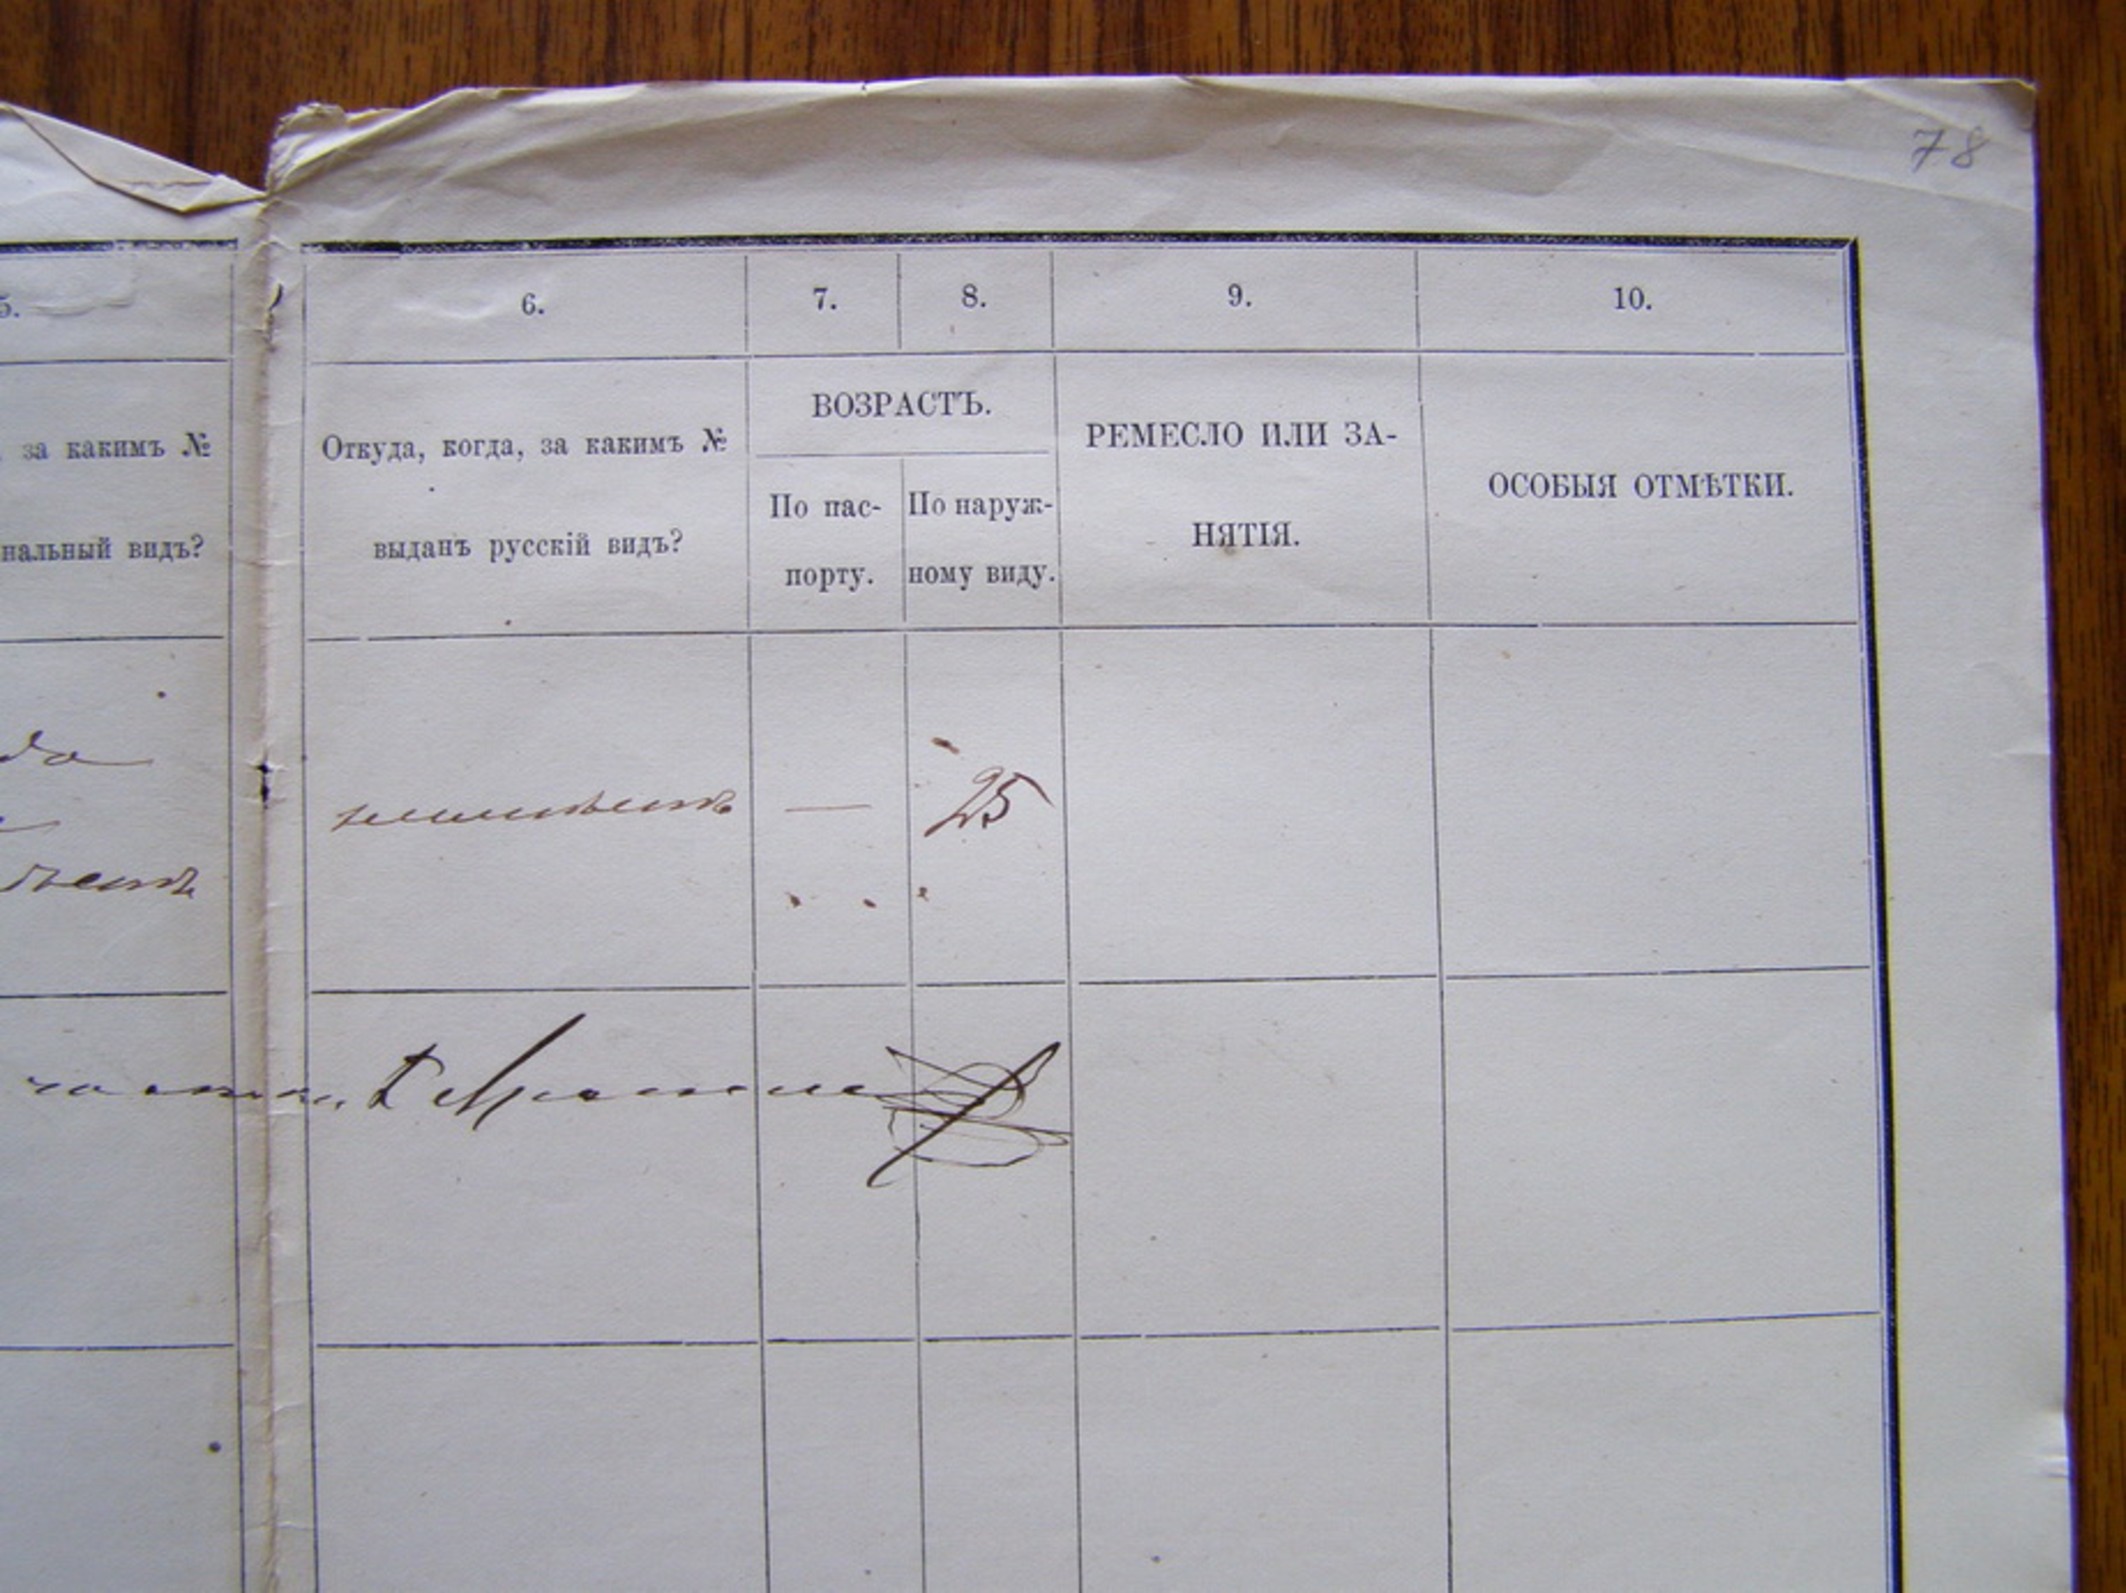 78
5.
6.
7.
8.
9.
10.
за какимъ №
нальный видъ?
Откуда, когда, за какимъ №
выданъ русскій видъ?
ВОЗРАСТЪ.
По пас-
порту.
По наруж-
ному виду.
РЕМЕСЛО ИЛИ ЗА-
НЯТІЯ.
ОСОБЫЯ ОТМѢТКИ.
— 25